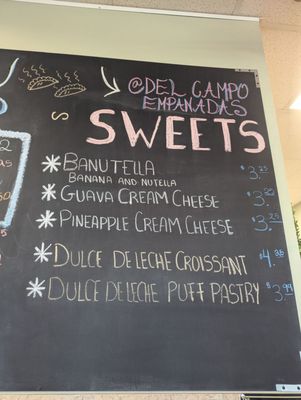 @DEL CAMPO
EMPANADAS
SWEETS
* BANUTELLA $3.25
BANANA AND NUTELLA
* GUAVA CREAM CHEESE
* PINEAPPLE CREAM CHEESE $3.25
* DULCE DE LECHE CROISSANT
* DULCE DE LECHE PUFF PASTRY $3.99